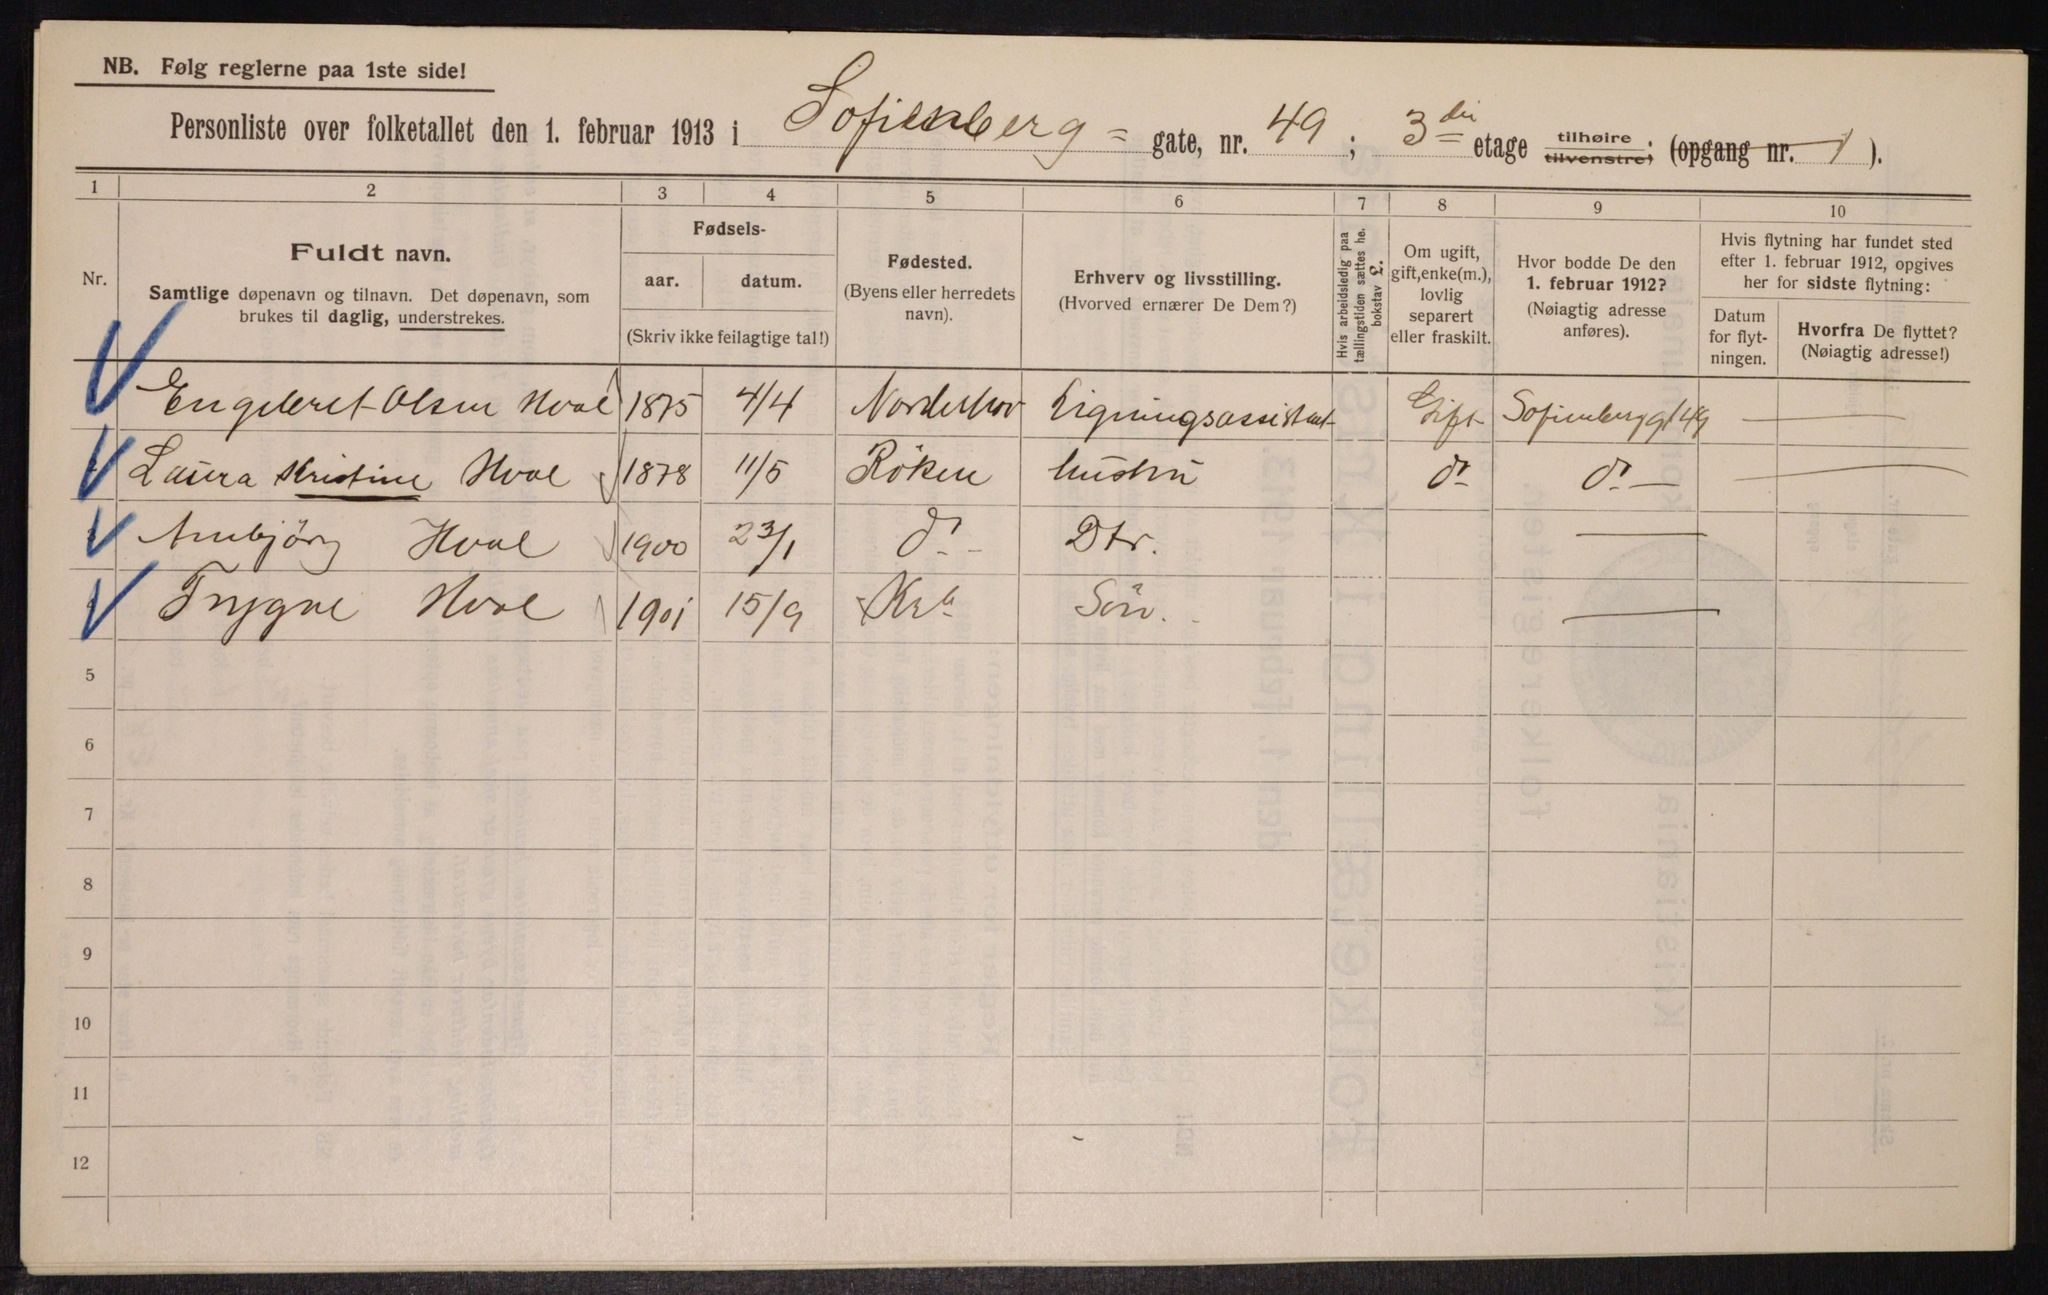 NB. Følg reglerne paa 1ste side!
Personliste over folketallet den 1. februar 1913 i Sofienberg = gate, nr. 49 ; 3die etage tilhøire tilvenstre; (opgang nr. 1 ).
1 2 3 4 5 6 7 8 9 10
Nr.
Fuldt navn.
Samtlige døpenavn og tilnavn. Det døpenavn, som
brukes til daglig, understrekes.
Fødsels-
aar. datum.
(Skriv ikke feilagtige tal!)
Fødested.
(Byens eller herredets
navn).
Erhverv og livsstilling.
(Hvorved ernærer De Dem?)
Hvis arbeidsledig paa
tællingstiden sættes he.
bokstav L.
Om ugift,
gift, enke(m.),
lovlig
separert
eller fraskilt.
Hvor bodde De den
1. februar 1912?
(Nøiagtig adresse
anføres).
Hvis flytning har fundet sted
efter 1. februar 1912, opgives
her for sidste flytning:
Datum
for flyt-
ningen.
Hvorfra De flyttet?
(Nøiagtig adresse!)
Engebret Olsen Hval 1875 4/4 Norderhov Ligningsassistent Gift Sofienberggt 49 —
Laura Kristine Hval 1878 11/5 Röken hustru do do — —
Annbjörg Hval 1900 23/1 do - Dtr. —
Trygve Hval 1901 15/9 Kra Sön. —
5
6
7
8
9
10
11
12